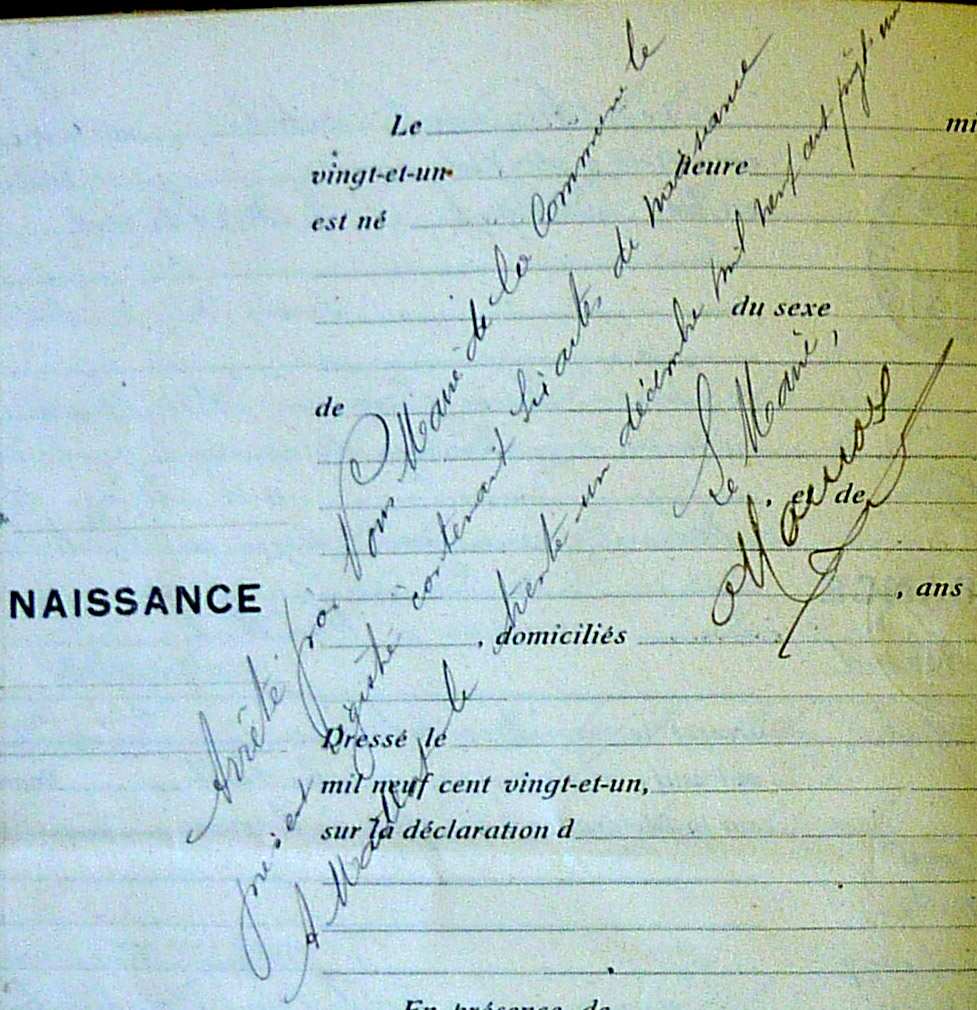 Le mi
vingt-et-un heure
est né
du sexe
de
, et de
NAISSANCE , ans
, domiciliés
Dressé le
mil neuf cent vingt-et-un,
sur la déclaration d
En présence de
Arrêté par Nous Maire de la Commune le
présent registre contenant six actes de naissance
A le trente-un décembre mil neuf cent vingt un
Le Maire,